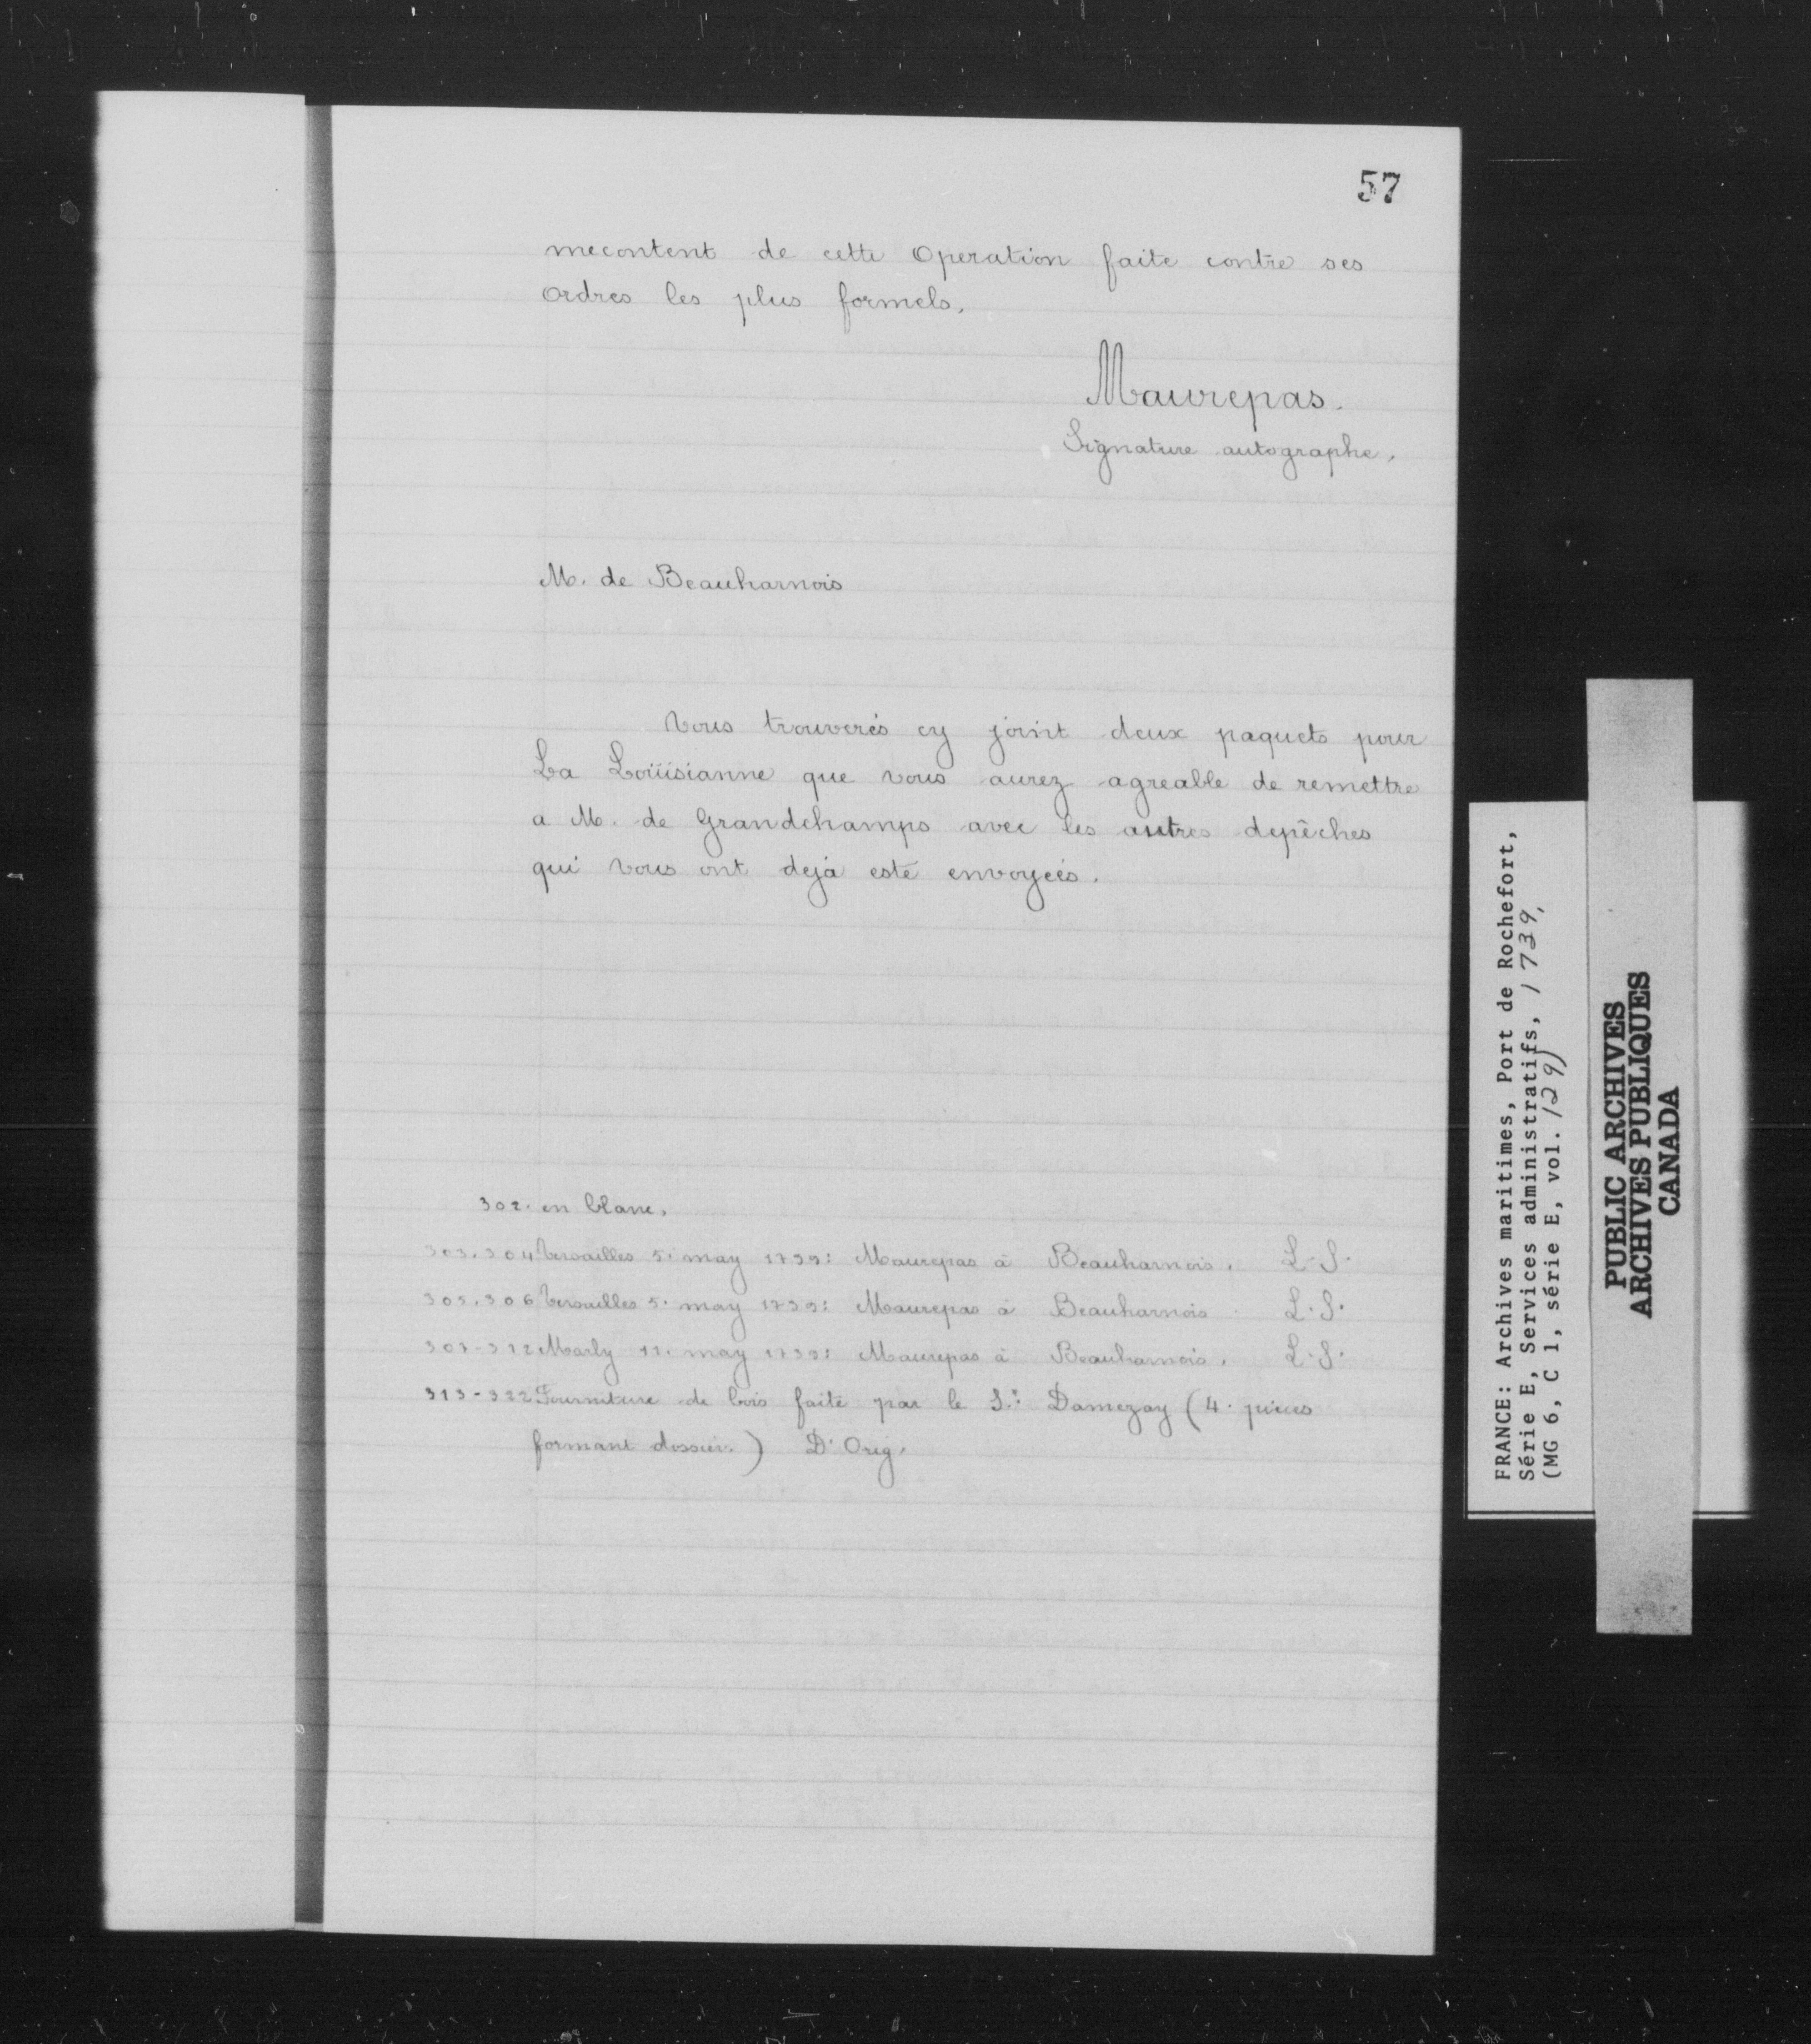 57
mecontent de cette Operation faite contre ses
Ordres les plus formels.
Maurepas.
Signature autographe.
M. de Beauharnois
Vous trouverés cy joint deux paquets pour
La Loüisianne que vous aurez agreable de remettre
a M. de Grandchamps avec les autres depêches
qui vous ont dejà esté envoyées.
302. en blanc.
303.304 Versailles 5. may 1739: Maurepas à Beauharnois. L.S.
305.306 Versailles 5. may 1739: Maurepas à Beauharnois. L.S.
307-312 Marly 11. may 1739: Maurepas à Beauharnois. L.S.
313-322 Fourniture de bois faite par le S.r Damezay (4. pièces
formant dossier.) D. Orig.
FRANCE: Archives maritimes, Port de Rochefort,
Série E, Services administratifs, 1739,
(MG 6, C 1, série E, vol. 129)
PUBLIC ARCHIVES
ARCHIVES PUBLIQUES
CANADA